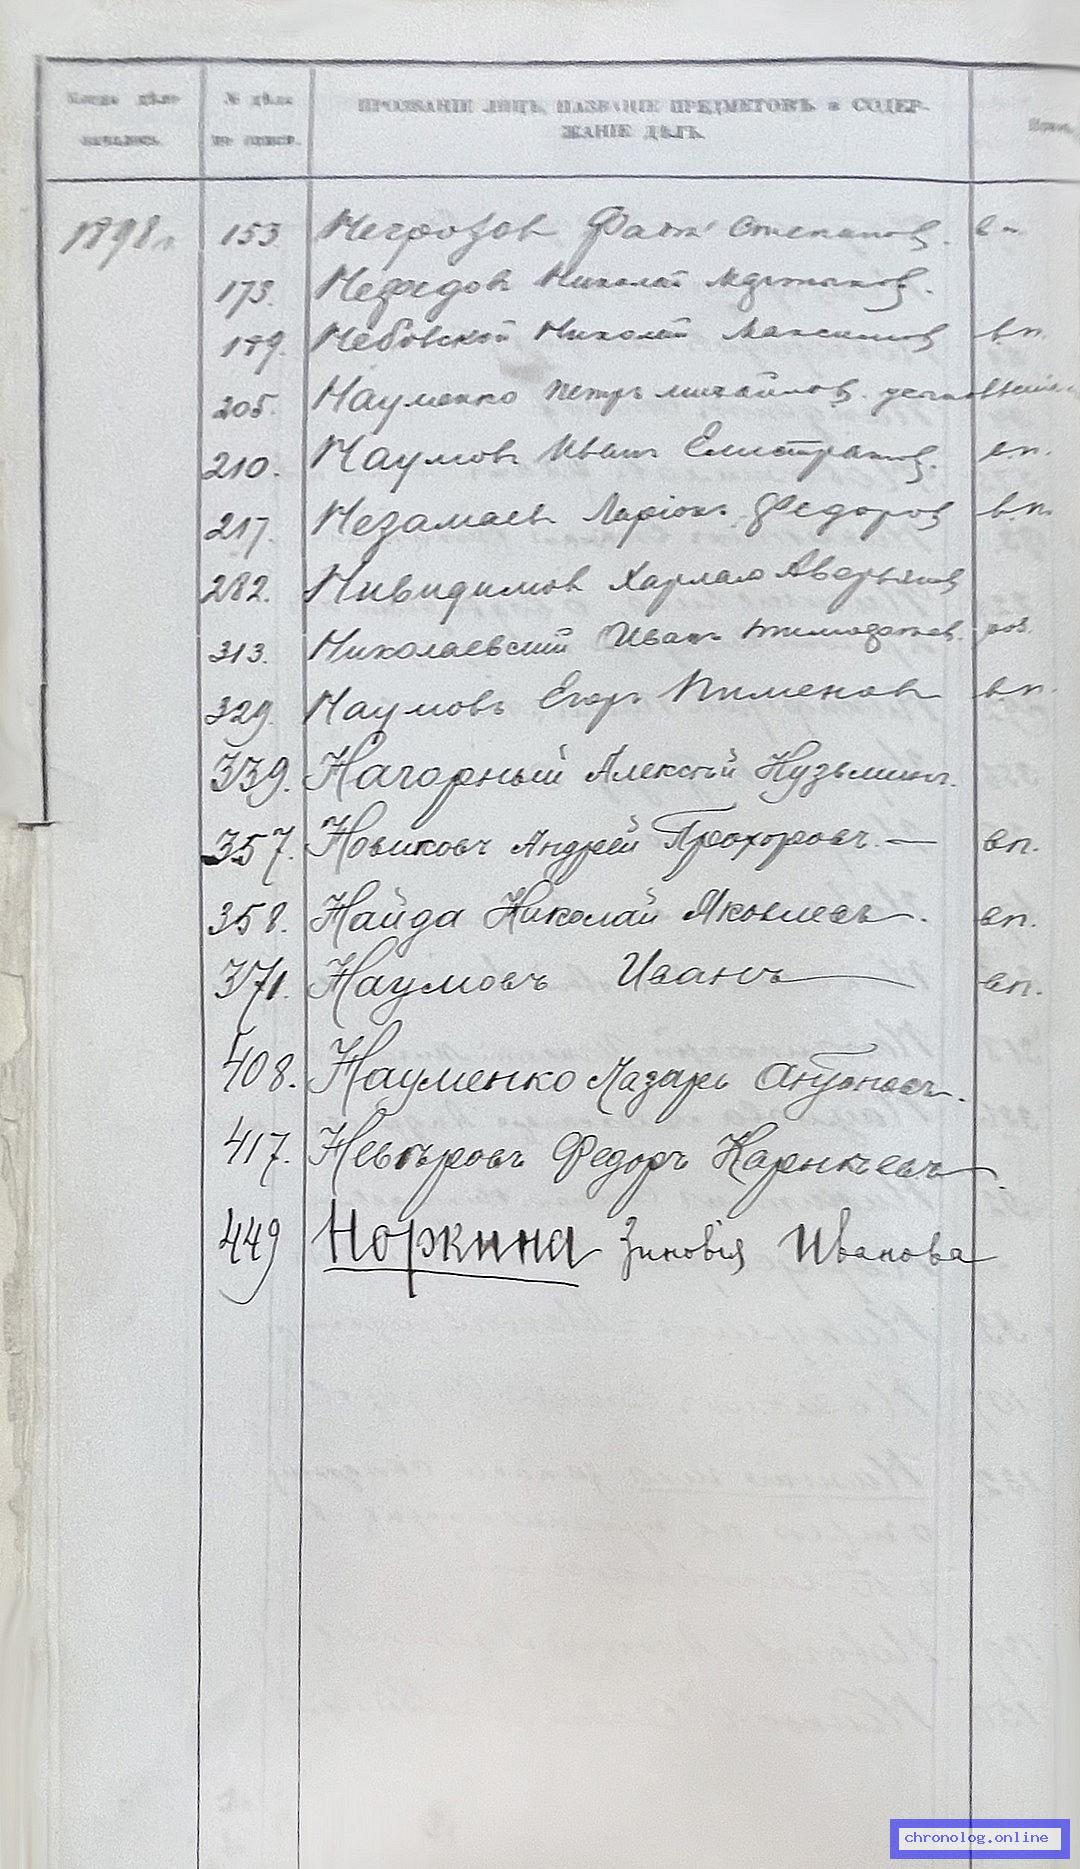 Когда дѣло началось. № дѣла по описи. ПРОЗВАНІЕ ЛИЦЪ, НАЗВАНІЕ ПРЕДМЕТОВЪ и СОДЕР-
ЖАНІЕ ДѢЛЪ.
1898 г. 153. Степанов. вп.
173. Нефедов Николай
189. Николай Максимов вп.
205. Науменко Петръ Михайлов.
210. Наумовъ Иванъ Елистратов. вп.
217. Незамаев Ларіонъ Федоров вп.
282. Нивидимов Харлам Аверьянов
313. Николаевский Иванъ Тимофеев.
329. Наумовъ Егоръ Пименов вп.
339. Нагорный Алексѣй Кузьминъ.
357. Новиковъ Андрей Прохоровъ. — вп.
358. Найда Николай Яковлевъ. вп.
371. Наумовъ Иванъ — вп.
408. Науменко Лазарь Антоновъ.
417. Невѣровъ Федоръ Карнѣевъ.
449 Норкина Зиновія Иванова
chronolog.online